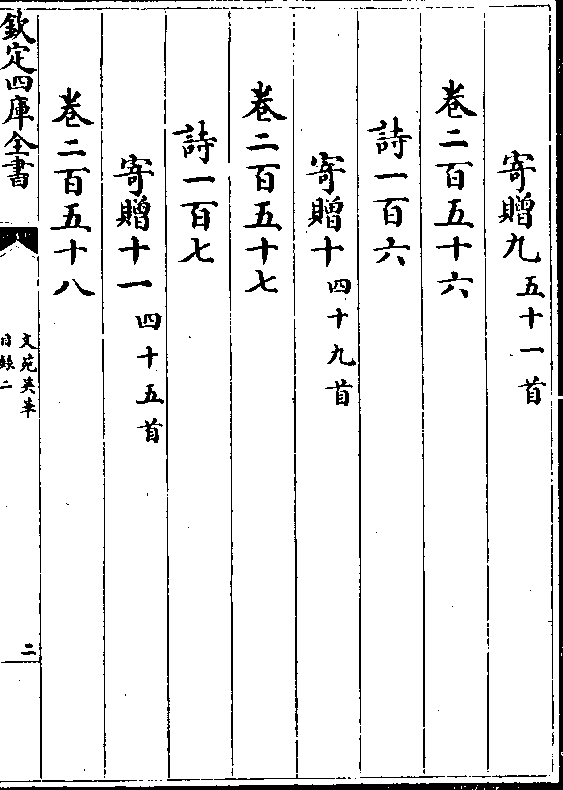 寄贈九五十一首
卷二百五十六
詩一百六
寄贈十四十九首
卷二百五十七
詩一百七
寄贈十一四十五首
卷二百五十八
欽定四庫全書
文苑英華
目錄二
二